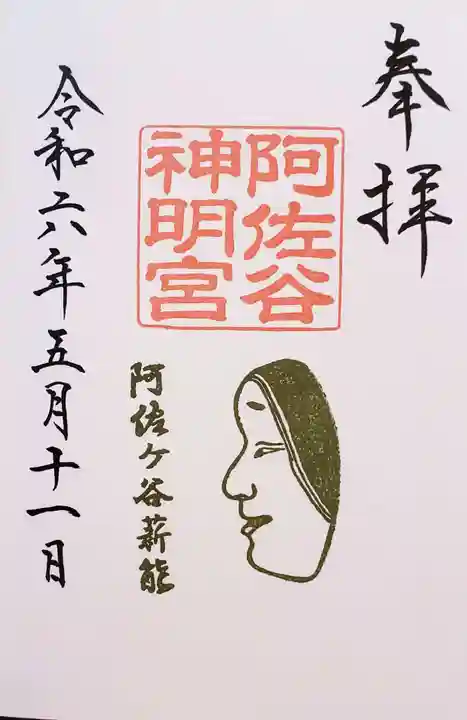 奉拝
阿佐谷
神明宮
阿佐ケ谷薪能
令和六年五月十一日